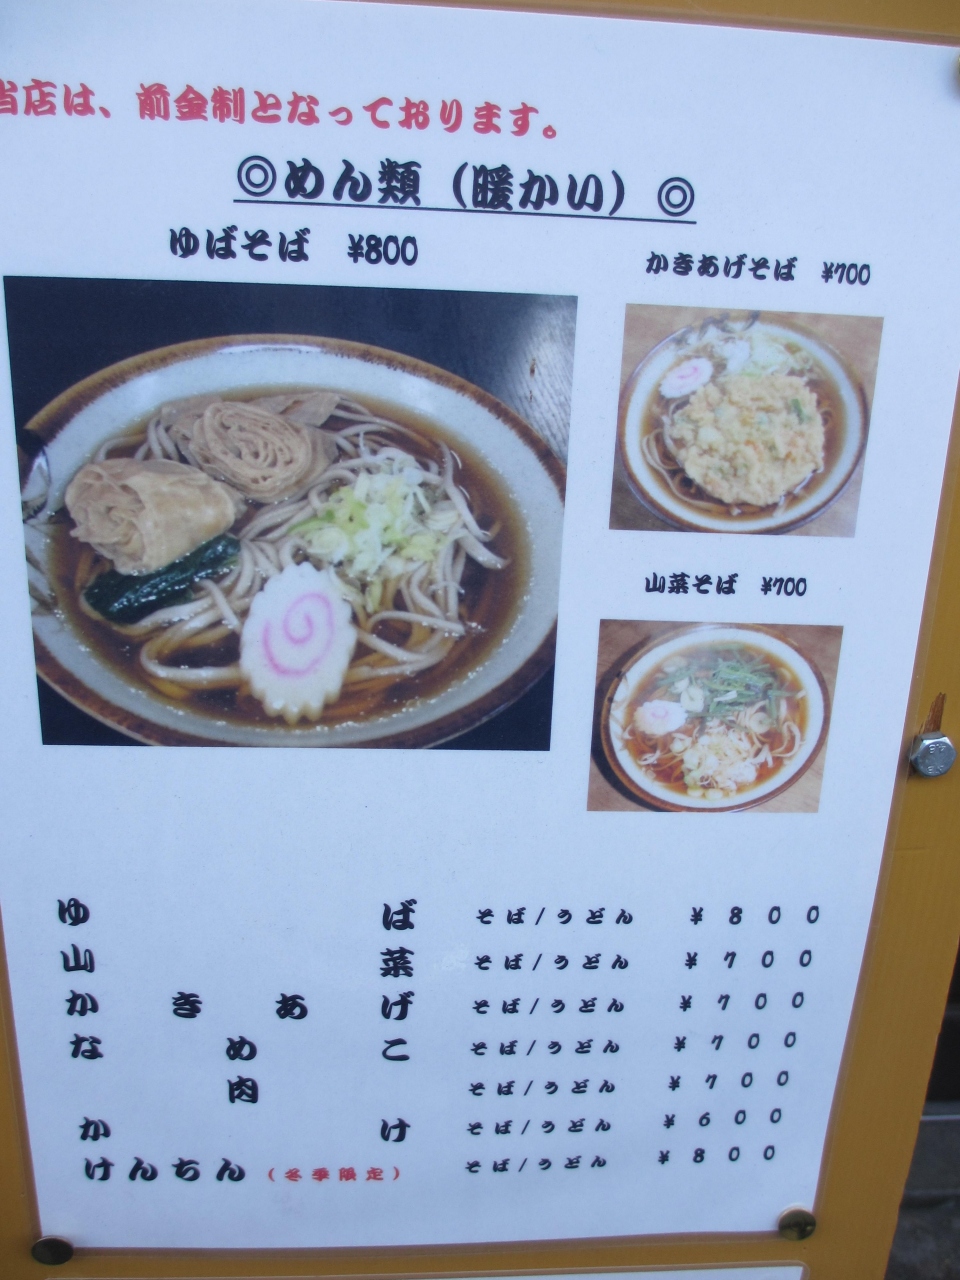 当店は、前金制となっております。
◎めん類（暖かい）◎
ゆばそば ¥800
かきあげそば ¥700
山菜そば ¥700
ゆば そば/うどん ¥800
山菜 そば/うどん ¥700
かきあげ そば/うどん ¥700
なめこ そば/うどん ¥700
肉 そば/うどん ¥700
かけ そば/うどん ¥600
けんちん（冬季限定） そば/うどん ¥800